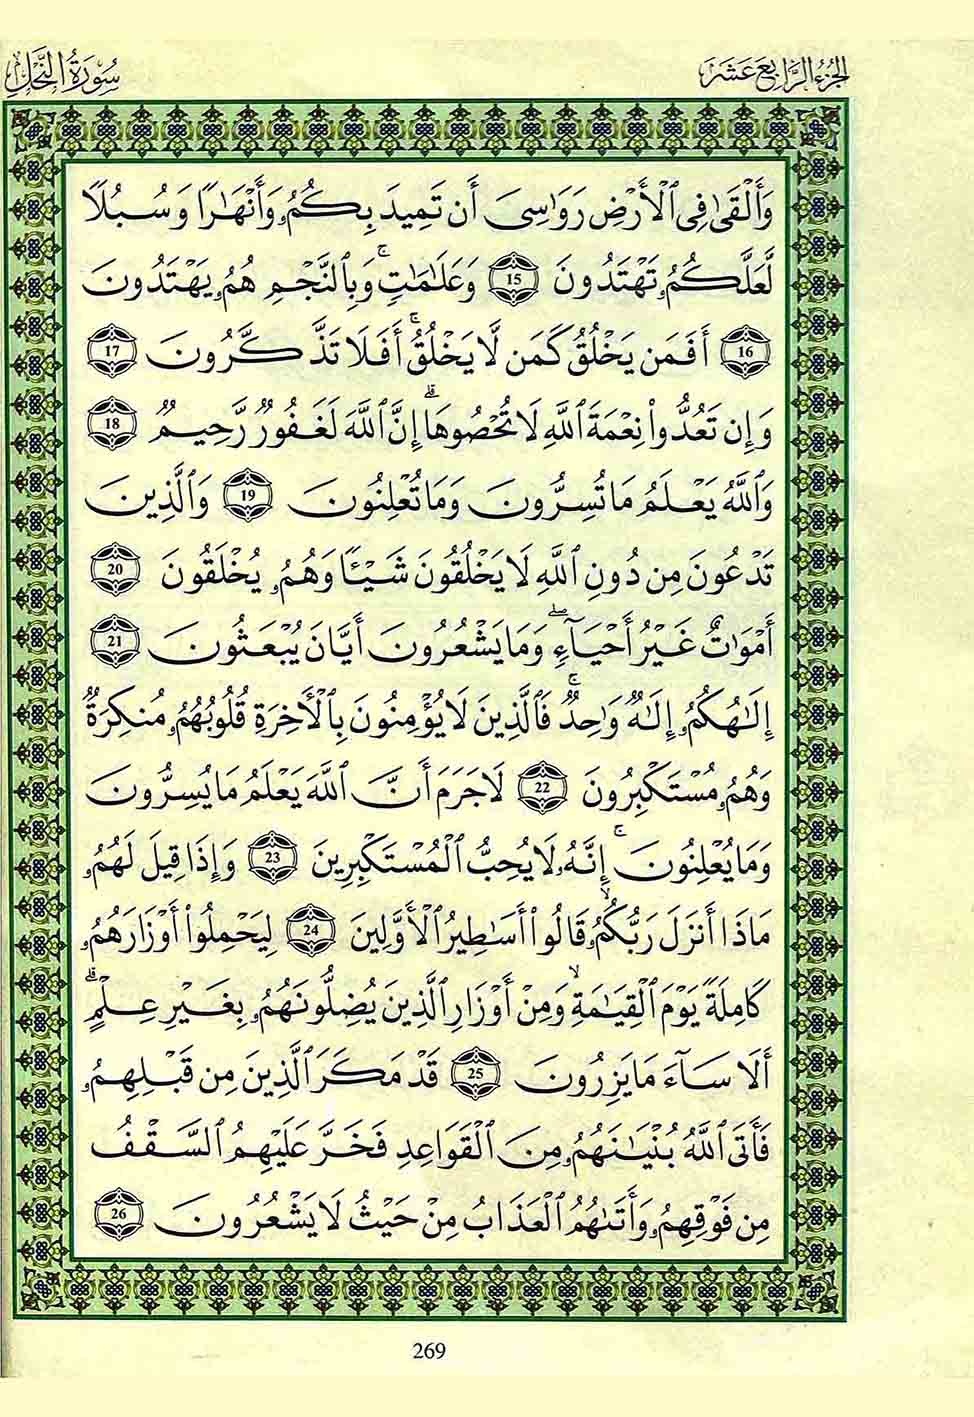 الجزء الرابع عشر
سورة النحل
وَأَلْقَىٰ فِى ٱلْأَرْضِ رَوَٰسِىَ أَن تَمِيدَ بِكُمُۥ وَأَنْهَٰرًا وَسُبُلًا
لَّعَلَّكُمُۥ تَهْتَدُونَ 15 وَعَلَٰمَٰتٍۚ وَبِٱلنَّجْمِ هُمُۥ يَهْتَدُونَ
16 أَفَمَن يَخْلُقُ كَمَن لَّا يَخْلُقُۚ أَفَلَا تَذَّكَّرُونَ 17
وَإِن تَعُدُّوا۟ نِعْمَةَ ٱللَّهِ لَا تُحْصُوهَاۗ إِنَّ ٱللَّهَ لَغَفُورٌ رَّحِيمٌ 18
وَٱللَّهُ يَعْلَمُ مَا تُسِرُّونَ وَمَا تُعْلِنُونَ 19 وَٱلَّذِينَ
تَدْعُونَ مِن دُونِ ٱللَّهِ لَا يَخْلُقُونَ شَيْـًٔا وَهُمُۥ يُخْلَقُونَ 20
أَمْوَٰتٌ غَيْرُ أَحْيَآءٍۖ وَمَا يَشْعُرُونَ أَيَّانَ يُبْعَثُونَ 21
إِلَٰهُكُمُۥ إِلَٰهٌ وَٰحِدٌۚ فَٱلَّذِينَ لَا يُؤْمِنُونَ بِٱلْأَخِرَةِ قُلُوبُهُمُۥ مُنكِرَةٌ
وَهُمُۥ مُسْتَكْبِرُونَ 22 لَا جَرَمَ أَنَّ ٱللَّهَ يَعْلَمُ مَا يُسِرُّونَ
وَمَا يُعْلِنُونَۚ إِنَّهُۥ لَا يُحِبُّ ٱلْمُسْتَكْبِرِينَ 23 وَإِذَا قِيلَ لَهُمُۥ
مَاذَا أَنزَلَ رَبُّكُمُۥۙ قَالُوا۟ أَسَٰطِيرُ ٱلْأَوَّلِينَ 24 لِيَحْمِلُوا۟ أَوْزَارَهُمُۥ
كَامِلَةً يَوْمَ ٱلْقِيَٰمَةِۙ وَمِنْ أَوْزَارِ ٱلَّذِينَ يُضِلُّونَهُمُۥ بِغَيْرِ عِلْمٍۗ
أَلَا سَآءَ مَا يَزِرُونَ 25 قَدْ مَكَرَ ٱلَّذِينَ مِن قَبْلِهِمُۥ
فَأَتَى ٱللَّهُ بُنْيَٰنَهُمُۥ مِنَ ٱلْقَوَاعِدِ فَخَرَّ عَلَيْهِمُ ٱلسَّقْفُ
مِن فَوْقِهِمُۥ وَأَتَىٰهُمُ ٱلْعَذَابُ مِنْ حَيْثُ لَا يَشْعُرُونَ 26
269